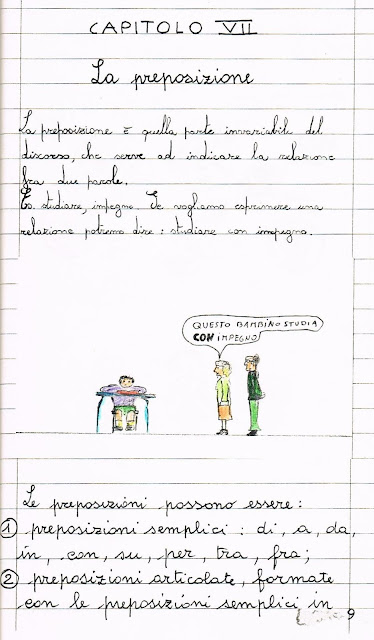 CAPITOLO VII
La preposizione
La preposizione è quella parte invariabile del
discorso, che serve ad indicare la relazione
fra due parole.
Es. studiare, impegno. Se vogliamo esprimere una
relazione potremo dire: studiare con impegno.
QUESTO BAMBINO STUDIA
CON IMPEGNO
Le preposizioni possono essere:
1 preposizioni semplici: di, a, da,
in, con, su, per, tra, fra;
2 preposizioni articolate, formate
con le preposizioni semplici in
9